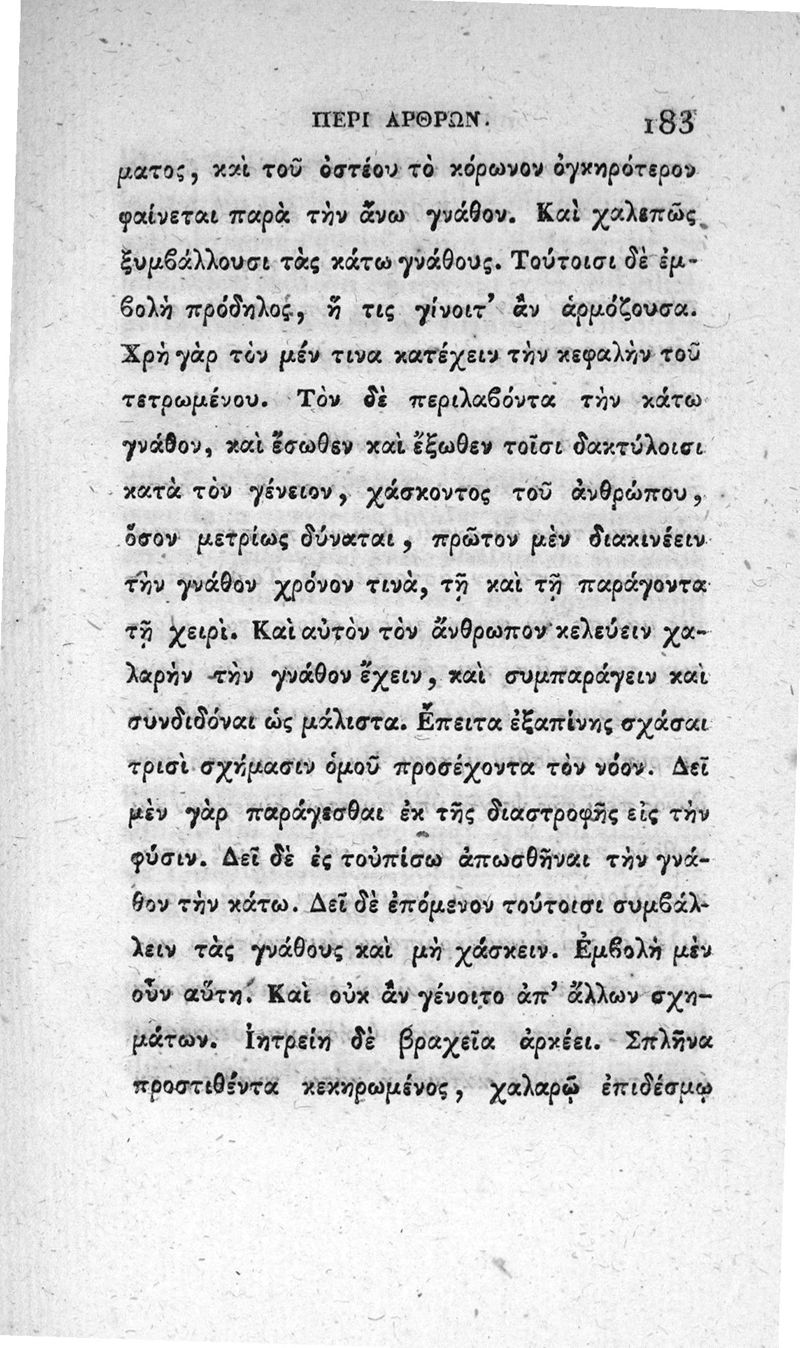 ΠΕΡΙ ΑΡΘΡΩΝ. 183
ματος, καὶ τοῦ ὀστέου τὸ κόρωνον ὀγκηρότερον
φαίνεται παρὰ τὴν ἄνω γνάθον. Καὶ χαλεπῶς
ξυμϐάλλουσι τὰς κάτω γνάθους. Τούτοισι δὲ ἐμ-
ϐολὴ πρόδηλος, ἥ τις γίνοιτ’ ἂν ἁρμόζουσα.
Χρὴ γὰρ τὸν μέν τινα κατέχειν τὴν κεφαλὴν τοῦ
τετρωμένου. Τὸν δὲ περιλαϐόντα τὴν κάτω
γνάθον, καὶ ἔσωθεν καὶ ἔξωθεν τοῖσι δακτύλοισι
κατὰ τὸν γένειον, χάσκοντος τοῦ ἀνθρώπου,
ὅσον μετρίως δύναται, πρῶτον μὲν διακινέειν
τὴν γνάθον χρόνον τινὰ, τῇ καὶ τῇ παράγοντα
τῇ χειρὶ. Καὶ αὐτὸν τὸν ἄνθρωπον κελεύειν χα-
λαρὴν τὴν γνάθον ἔχειν, καὶ συμπαράγειν καὶ
συνδιδόναι ὡς μάλιστα. Ἔπειτα ἐξαπίνης σχάσαι
τρισὶ σχήμασιν ὁμοῦ προσέχοντα τὸν νόον. Δεῖ
μὲν γὰρ παράγεσθαι ἐκ τῆς διαστροφῆς εἰς τὴν
φύσιν. Δεῖ δὲ ἐς τοὐπίσω ἀπωσθῆναι τὴν γνά-
θον τὴν κάτω. Δεῖ δὲ ἑπόμενον τούτοισι συμϐάλ-
λειν τὰς γνάθους καὶ μὴ χάσκειν. Ἐμϐολὴ μὲν
οὖν αὕτη. Καὶ οὐκ ἂν γένοιτο ἀπ’ ἄλλων σχη-
μάτων. Ἰητρείη δὲ βραχεῖα ἀρκέει. Σπλῆνα
προστιθέντα κεκηρωμένος, χαλαρῷ ἐπιδέσμῳ